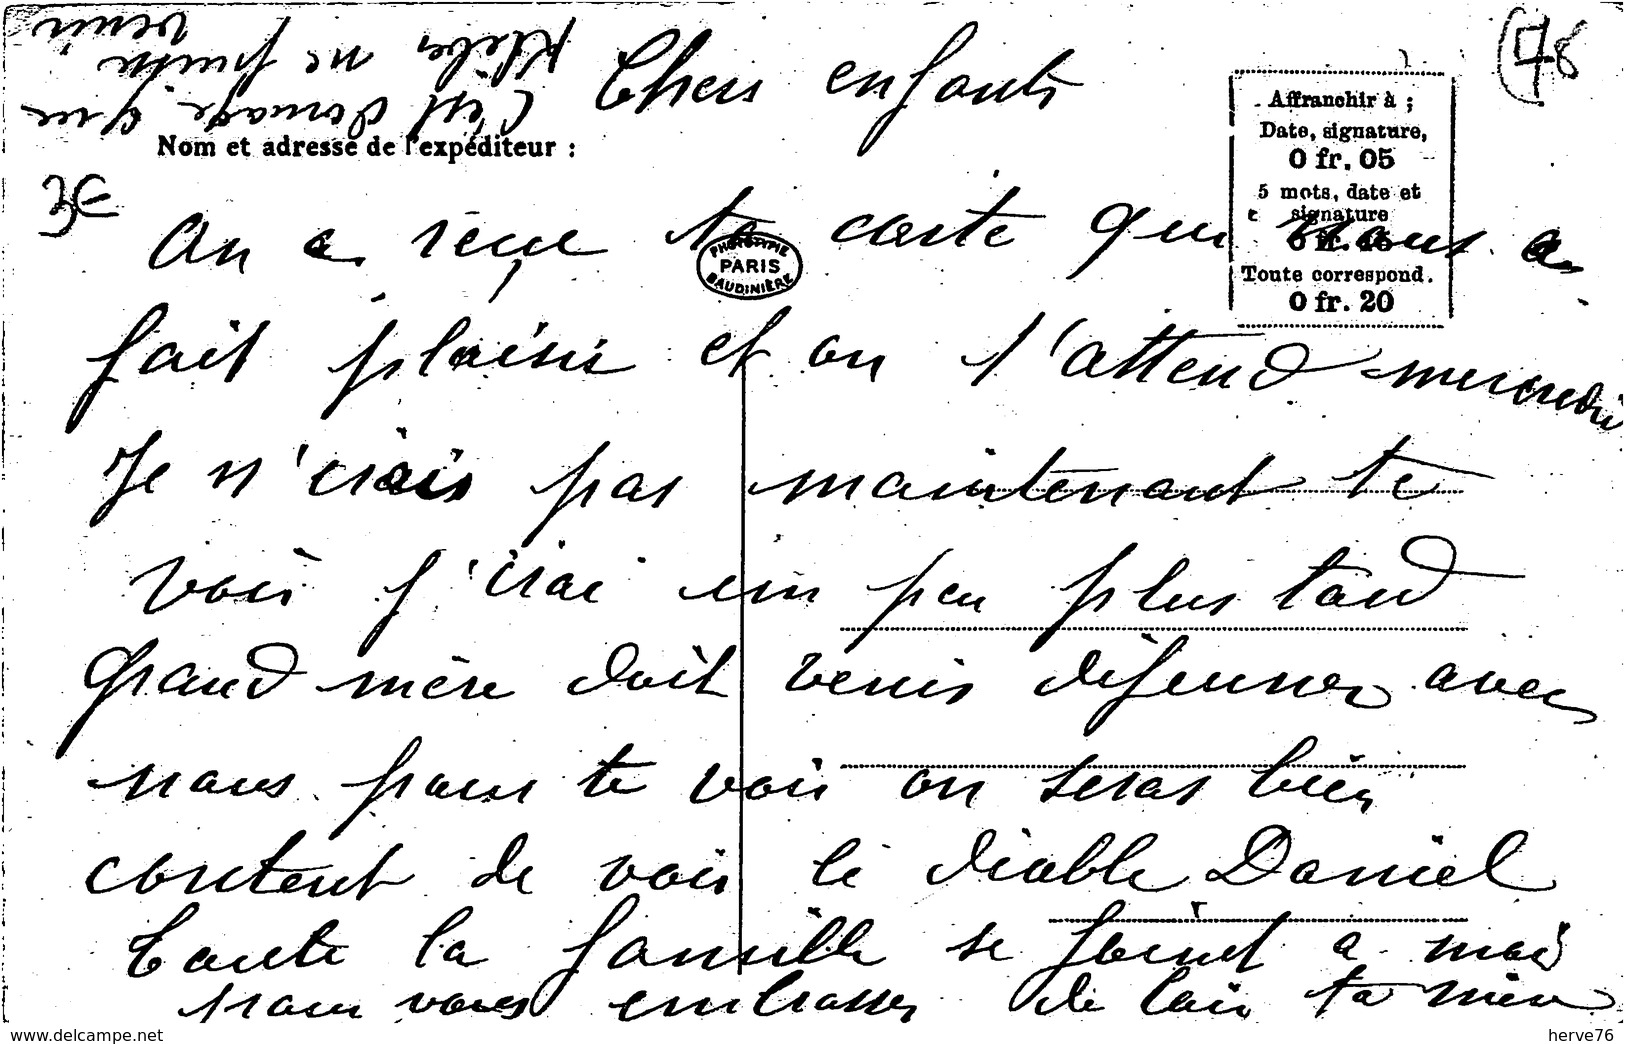 Chers enfants
Nom et adresse de l'expéditeur :
On a reçue ta carte qui nous a
fait plaisir et on t'attend mercredi
Je n'irais pas maintenant te
voir j'irai un peu plus tard
Grand mère doit venir déjeunner avec
nous pour te voir on seras bien
content de voir le diable Daniel
Toute la famille se joint a moi
pour vous embrasser de loin ta mère
C'est domage que
Kleber ne puisse
venir
Affranchir à ;
Date, signature,
0 fr. 05
5 mots, date et
signature
0 fr. 15
Toute correspond.
0 fr. 20
PHOTOTYPIE
PARIS
BAUDINIÈRE
3€
(78
www.delcampe.net
herve76